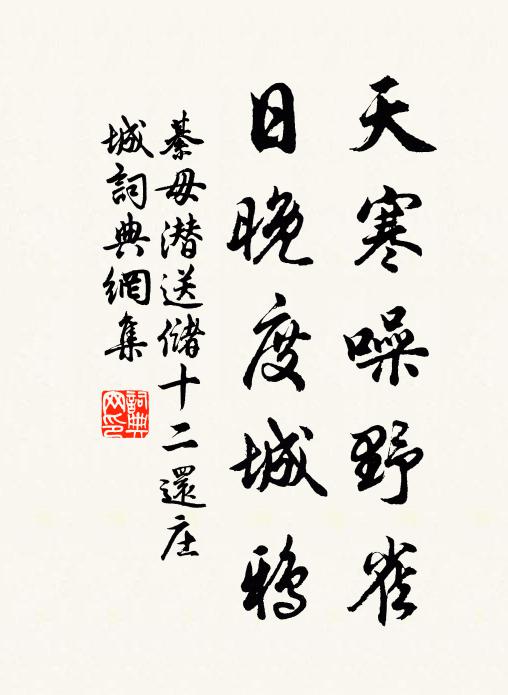 天寒噪野雀
日晚度城鴉
綦毋潜送儲十二還庄
城詞典網集
詞典
网印